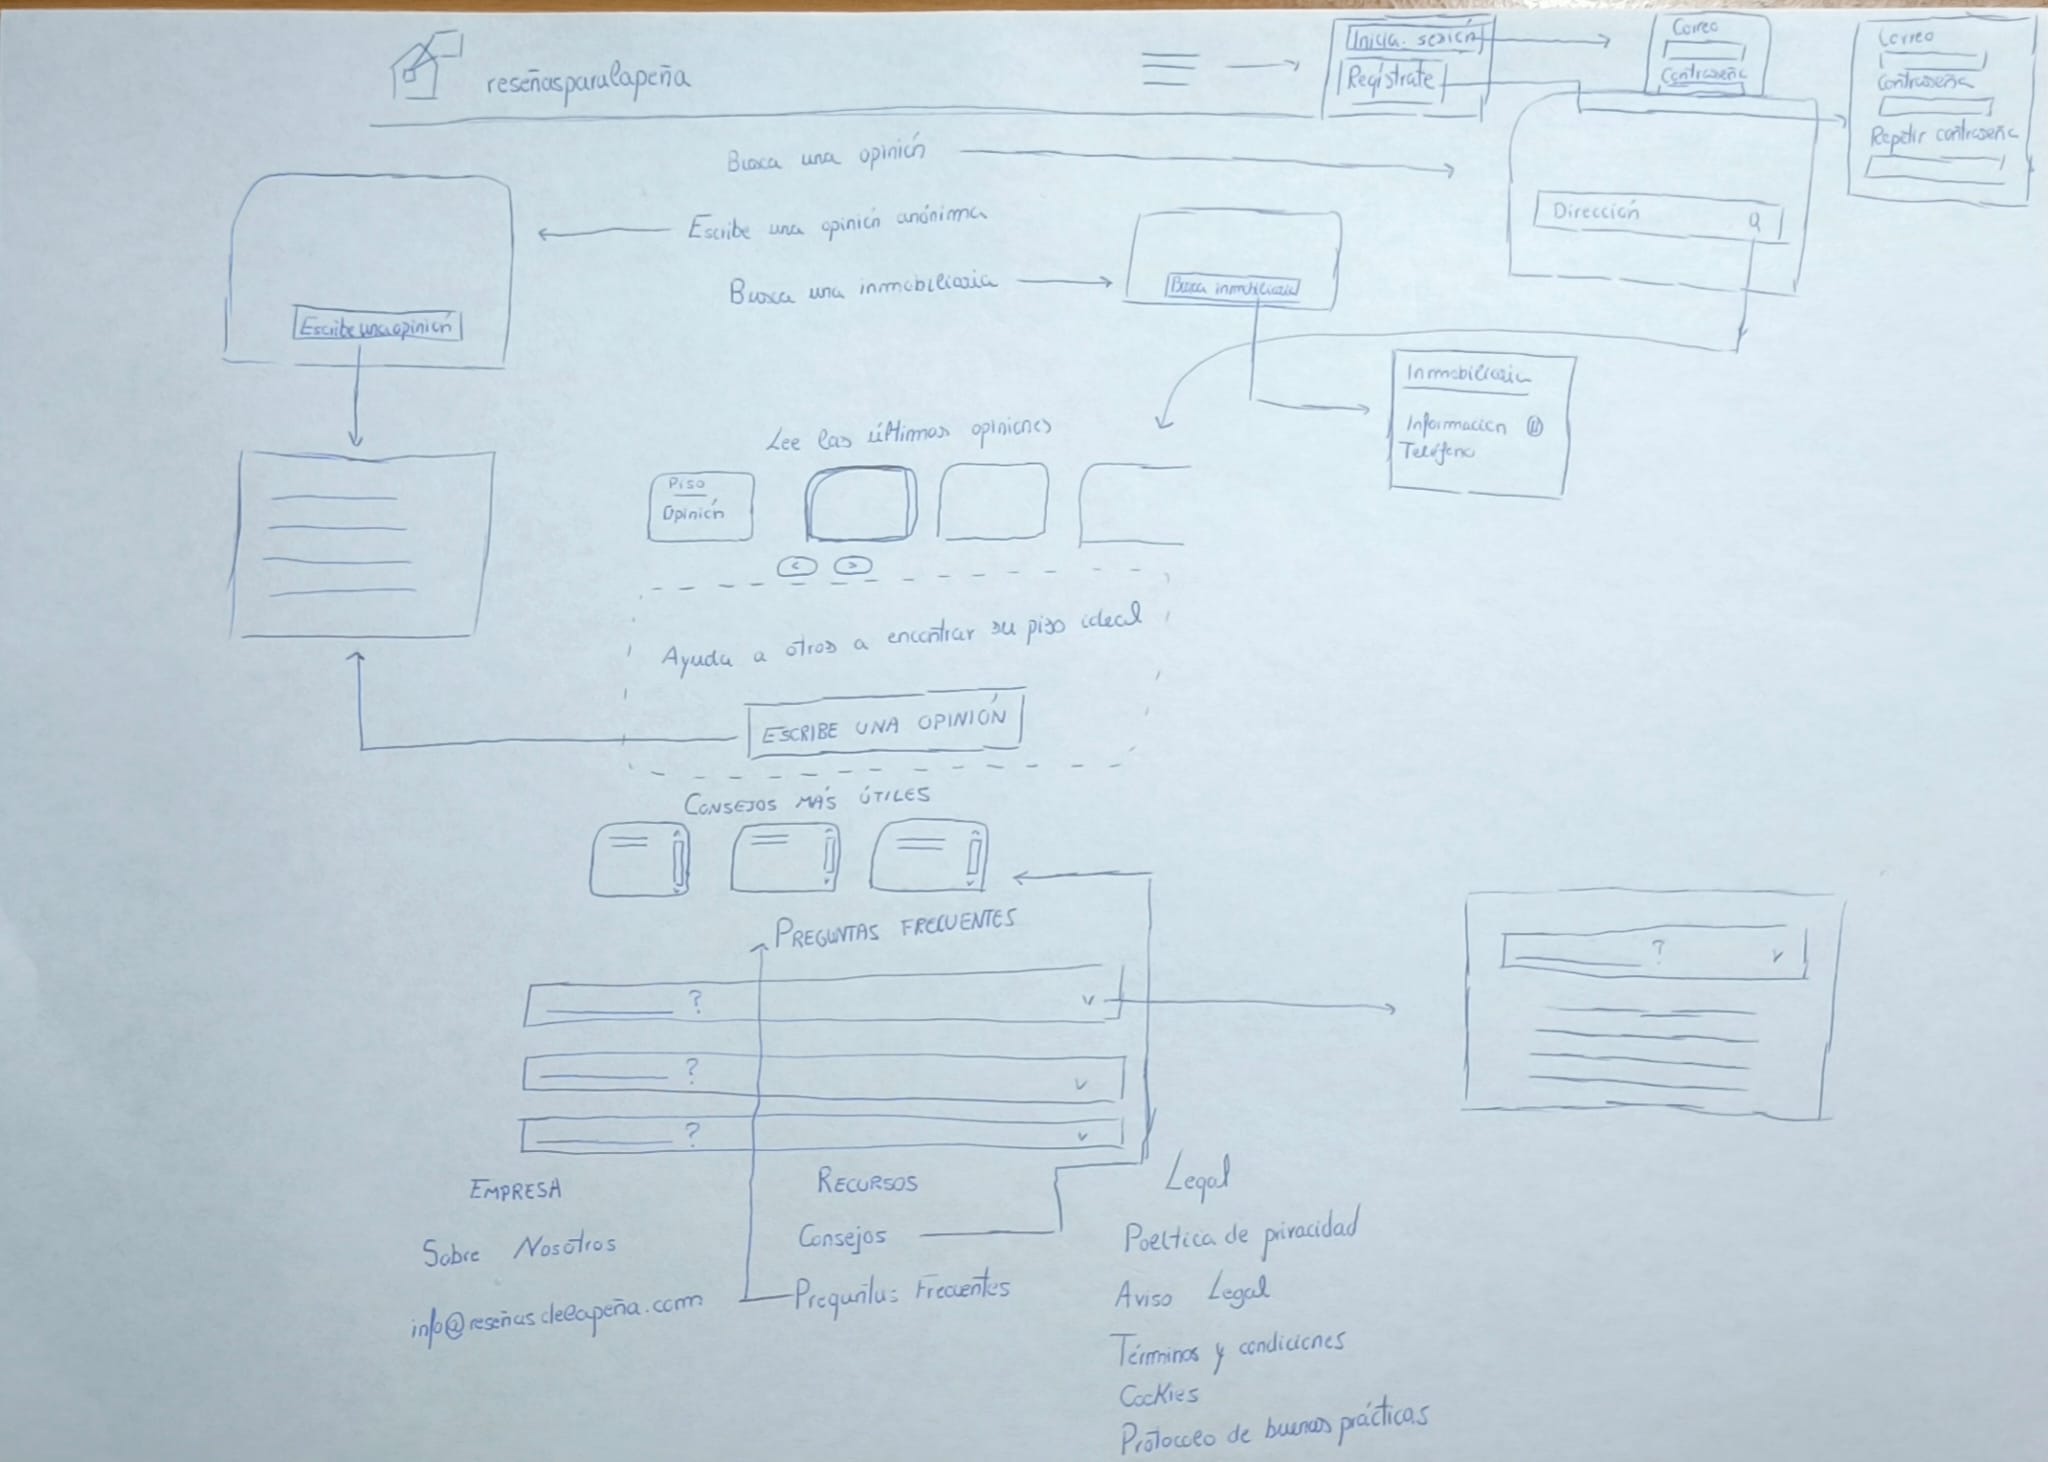 reseñasparalapeña
Inicia sesión
Regístrate
Correo
Contraseña
Correo
Contraseña
Repetir contraseña
Busca una opinión
Escribe una opinión anónima
Busca una inmobiliaria
Dirección
Busca inmobiliaria
Escribe una opinión
Inmobiliaria
Información
Teléfono
Lee las últimas opiniones
Piso
Opinión
<
>
Ayuda a otros a encontrar su piso ideal
ESCRIBE UNA OPINIÓN
CONSEJOS MÁS ÚTILES
PREGUNTAS FRECUENTES
?
?
?
?
EMPRESA
Sobre Nosotros
info@reseñasdelapeña.com
RECURSOS
Consejos
Preguntas Frecuentes
Legal
Política de privacidad
Aviso Legal
Términos y condiciones
Cookies
Protocolo de buenas prácticas